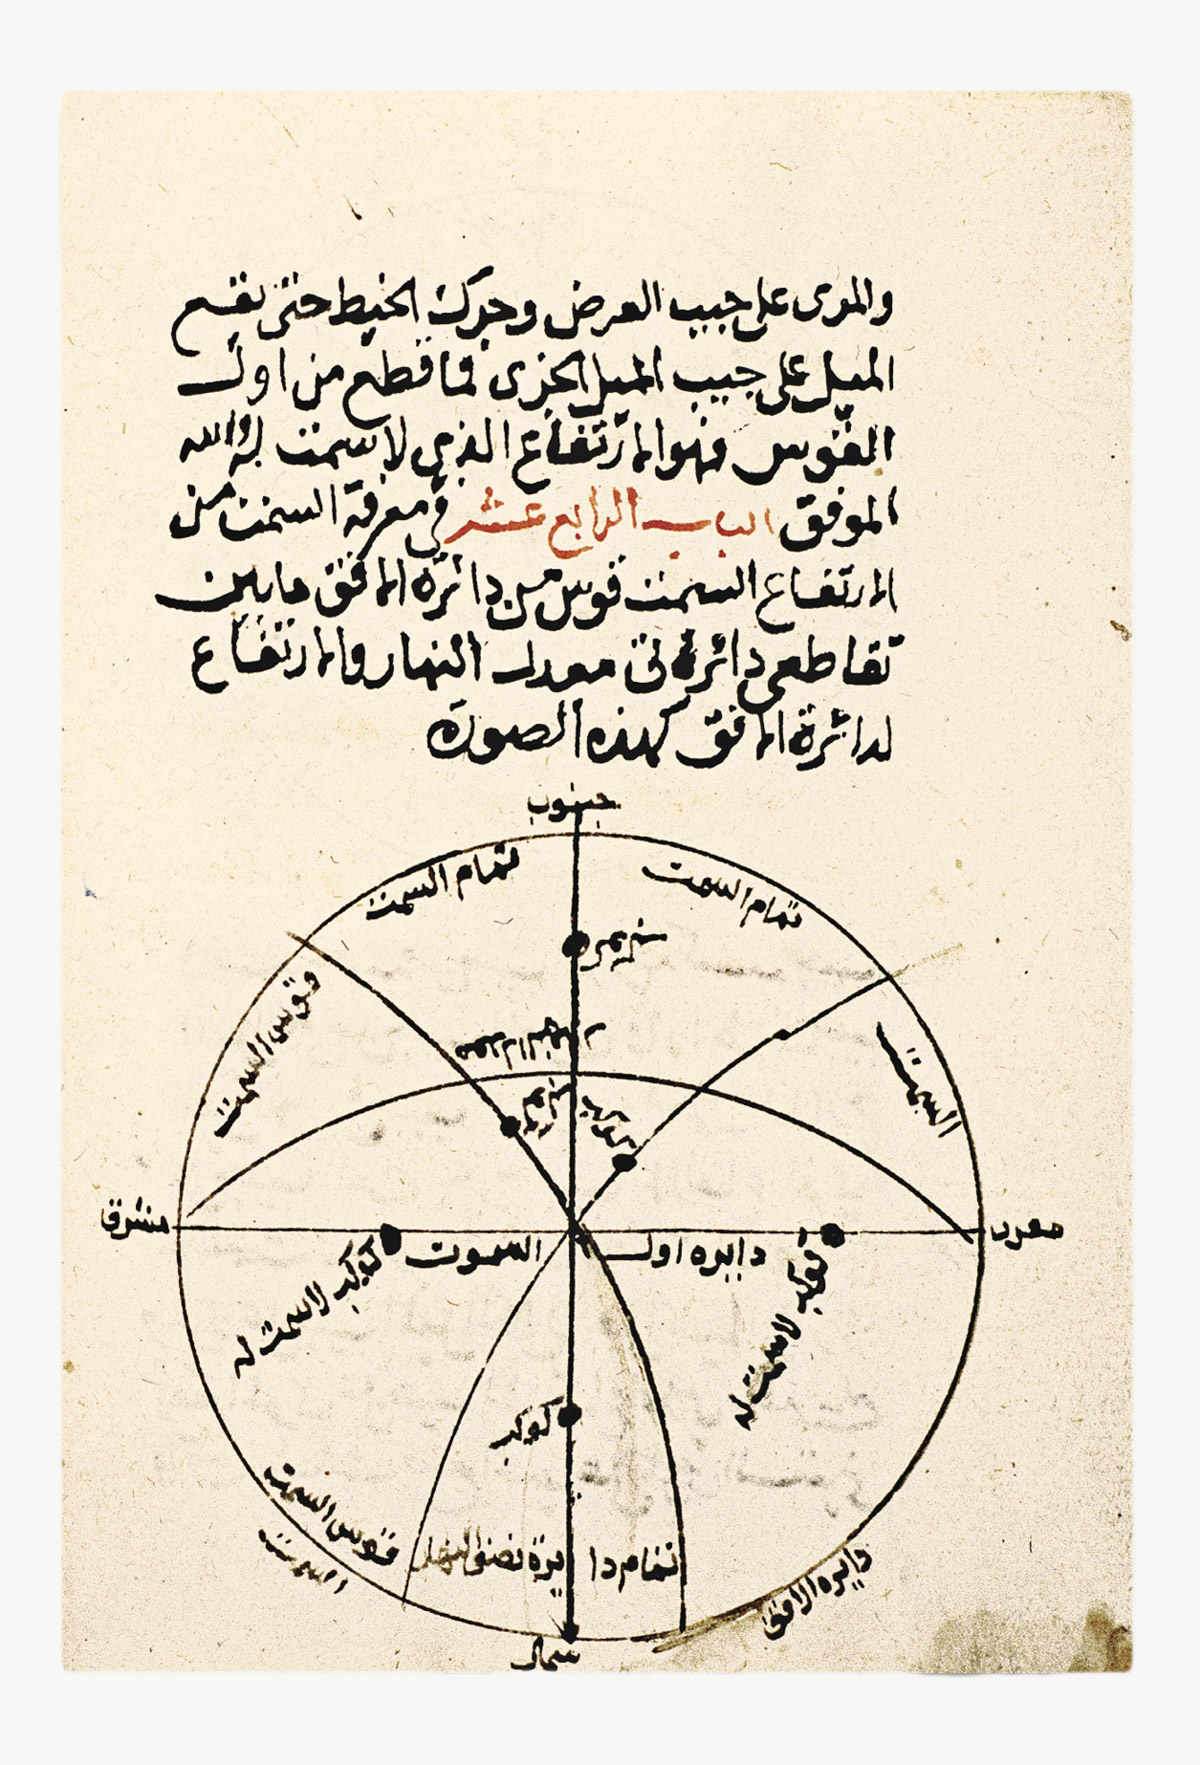 والمرى على جيب العرض وحرك الخيط حتى يقع
الميل على جيب الميل الجزى فما قطع من اول
القوس فهو الارتفاع الذي لا سمت له والله
الموفق الباب الرابع عشر في معرفة السمت من
الارتفاع السمت قوس من دائرة الافق ما بين
تقاطعي دائرة في معدل النهار والارتفاع
لدائرة الافق كهذه الصورة
جنوب
تمام السمت
تمام السمت
قوس السمت
السمت
كوكب
مشرق
مغرب
دايره اول
السموت
كوكب لا سمت له
كوكب لا سمت له
كوكب
قوس السمت
السمت
تمام دا
يرة نصف النهار
دايره الافق
شمال